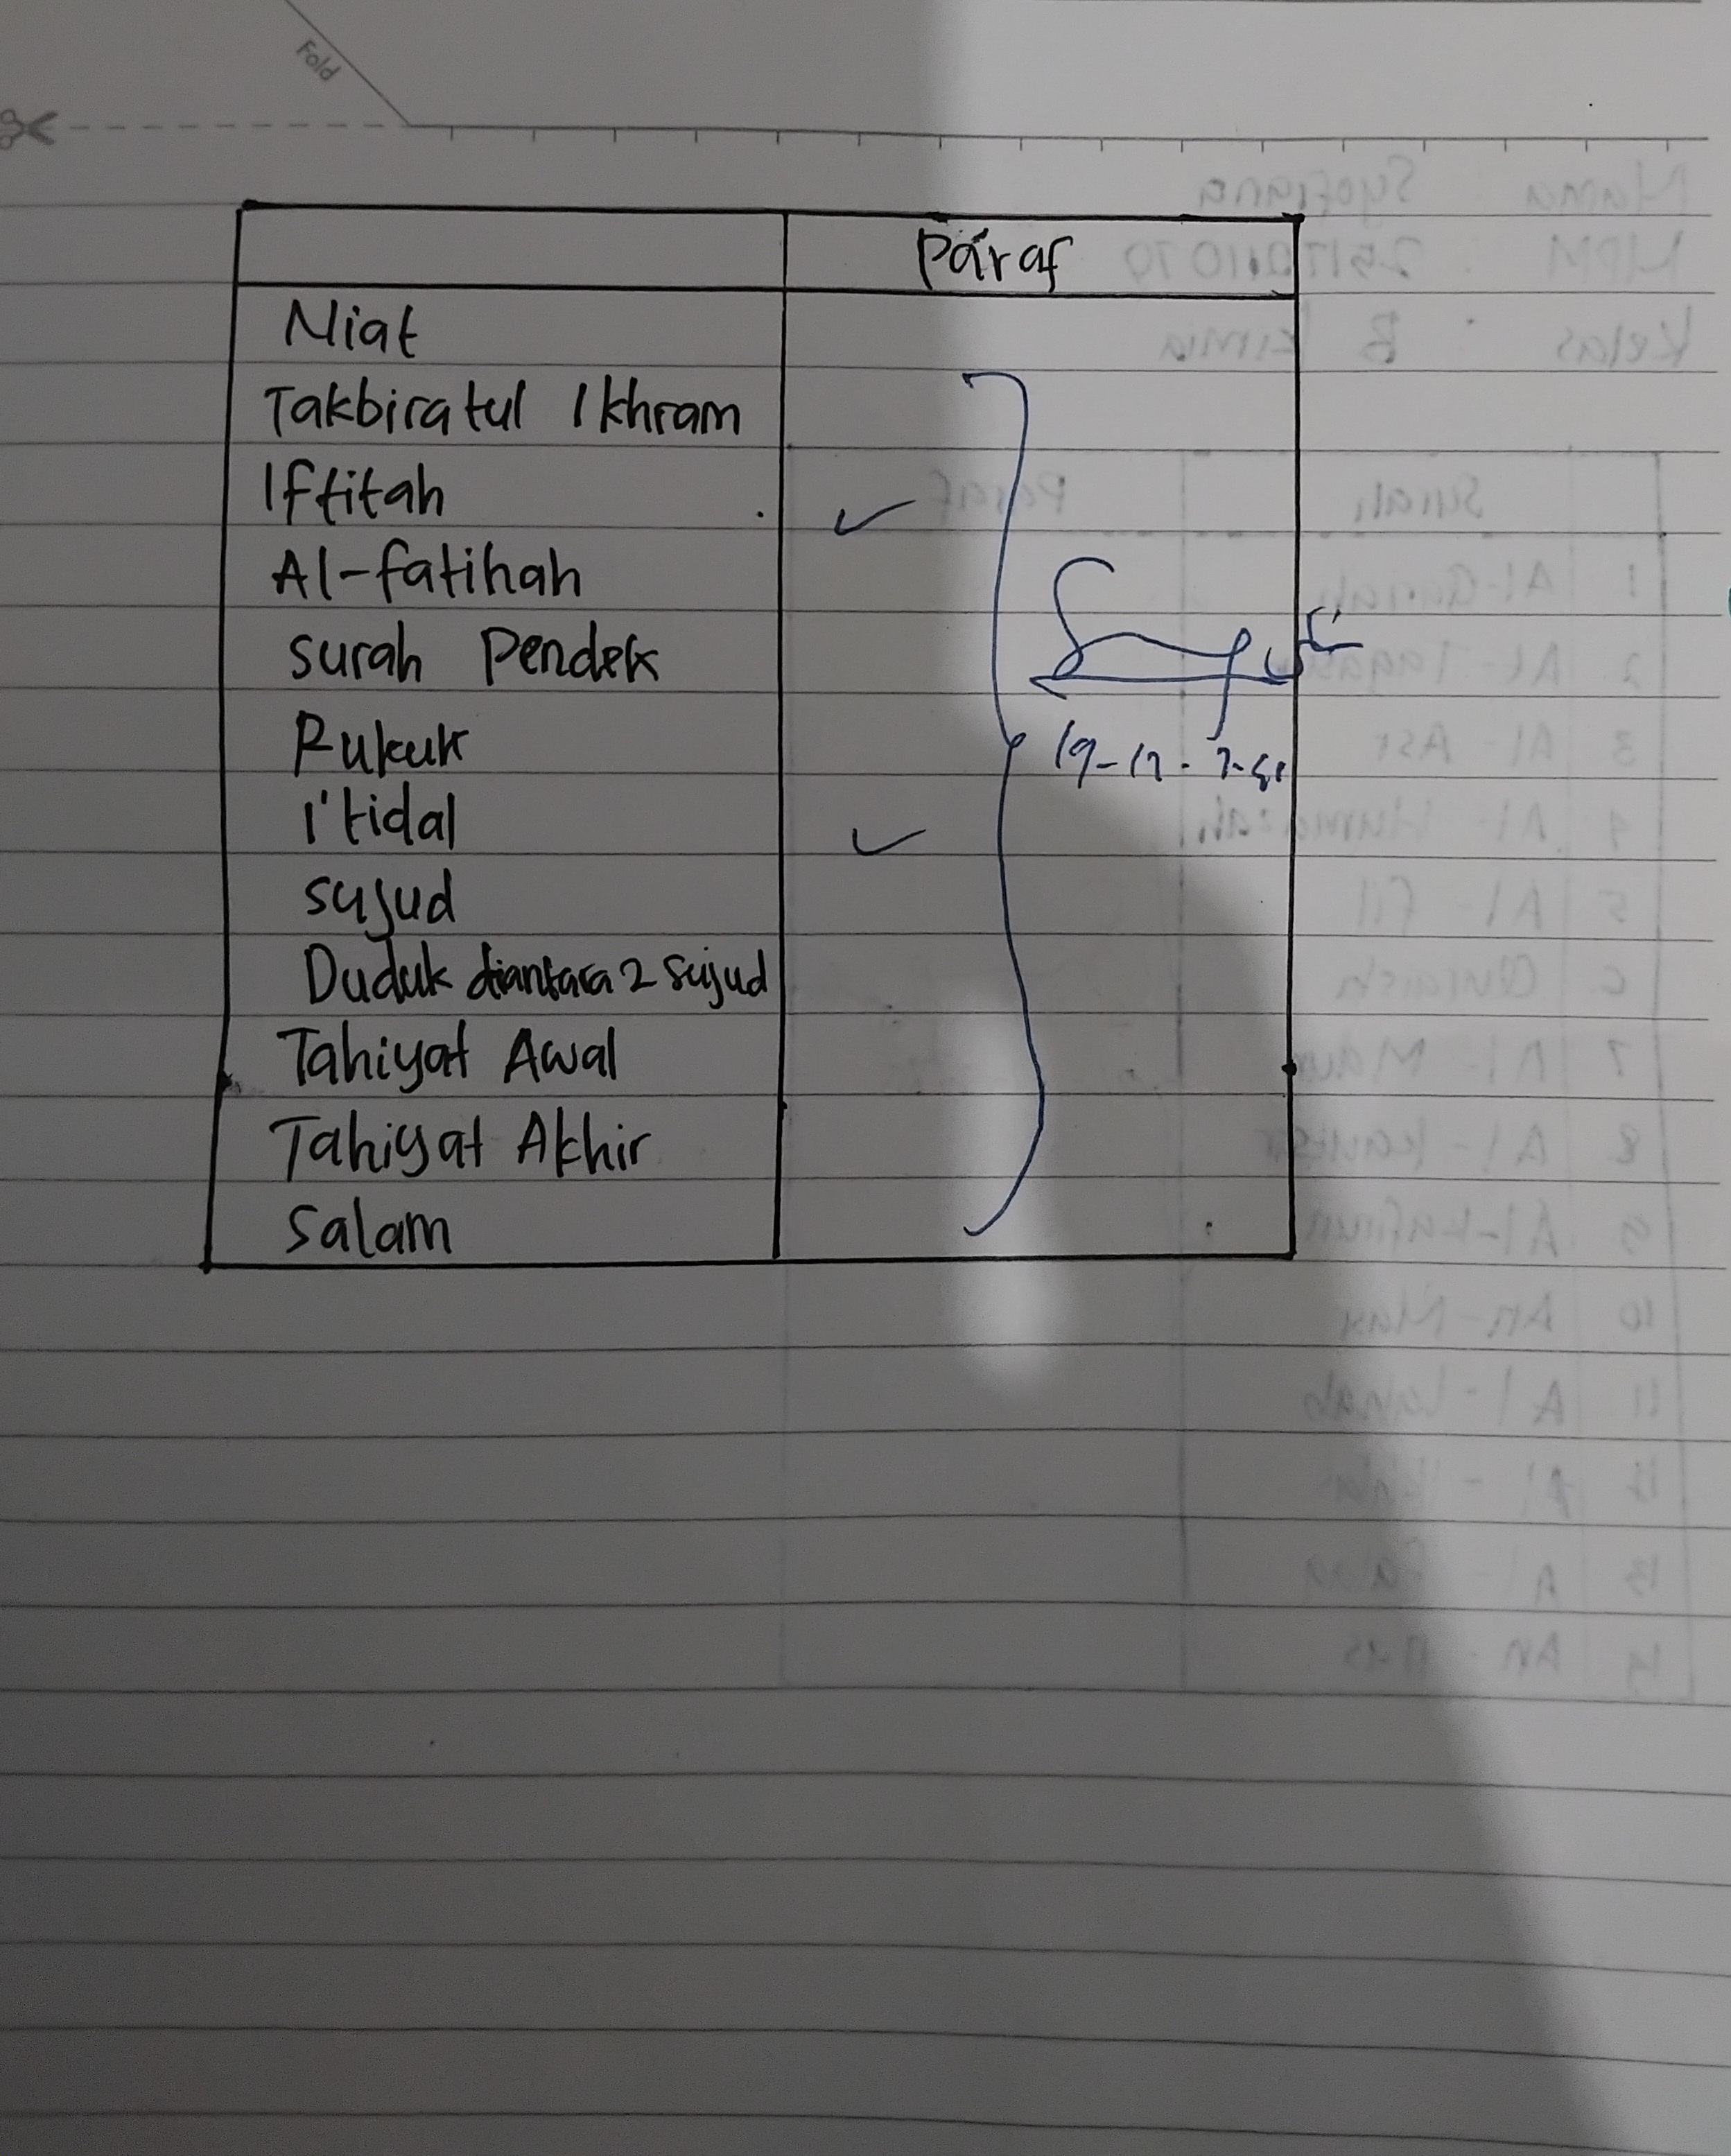 Fold
Paraf
Niat
Takbiratul Ikhram
Iftitah
Al-fatihah
surah Pendek
Rukuk
I'tidal
sujud
Duduk diantara 2 sujud
Tahiyat Awal
Tahiyat Akhir
Salam